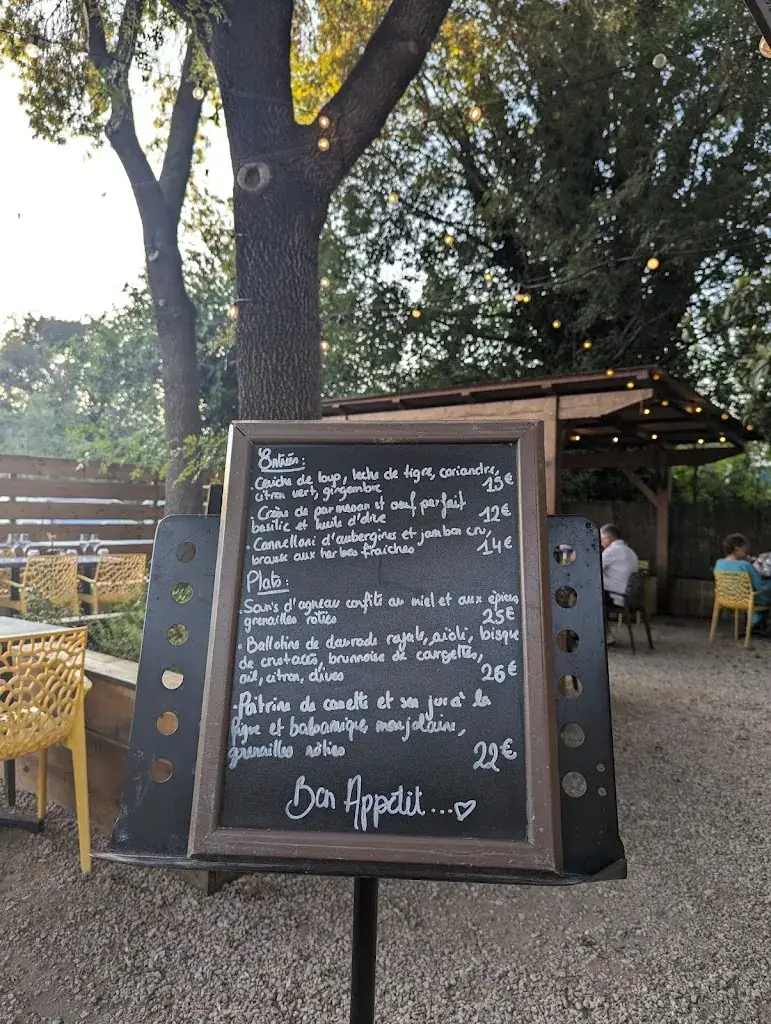 Entrées :
. Ceviche de loup, leche de tigre, coriandre,
citron vert, gingembre 15€
. Crème de parmesan et oeuf parfait
basilic et huile d'olive 12€
. Cannelloni d'aubergines et jambon cru,
brousse aux herbes fraîches 14€
Plats :
. Souris d'agneau confite au miel et aux épices
grenailles rôties 25€
. Ballotine de daurade royale, aïoli, bisque
de crustacés, brunoise de courgettes,
ail, citron, olives 26€
. Poitrine de canette et son jus à la
figue et balsamique marjolaine,
grenailles rôties 22€
Bon Appétit...♡